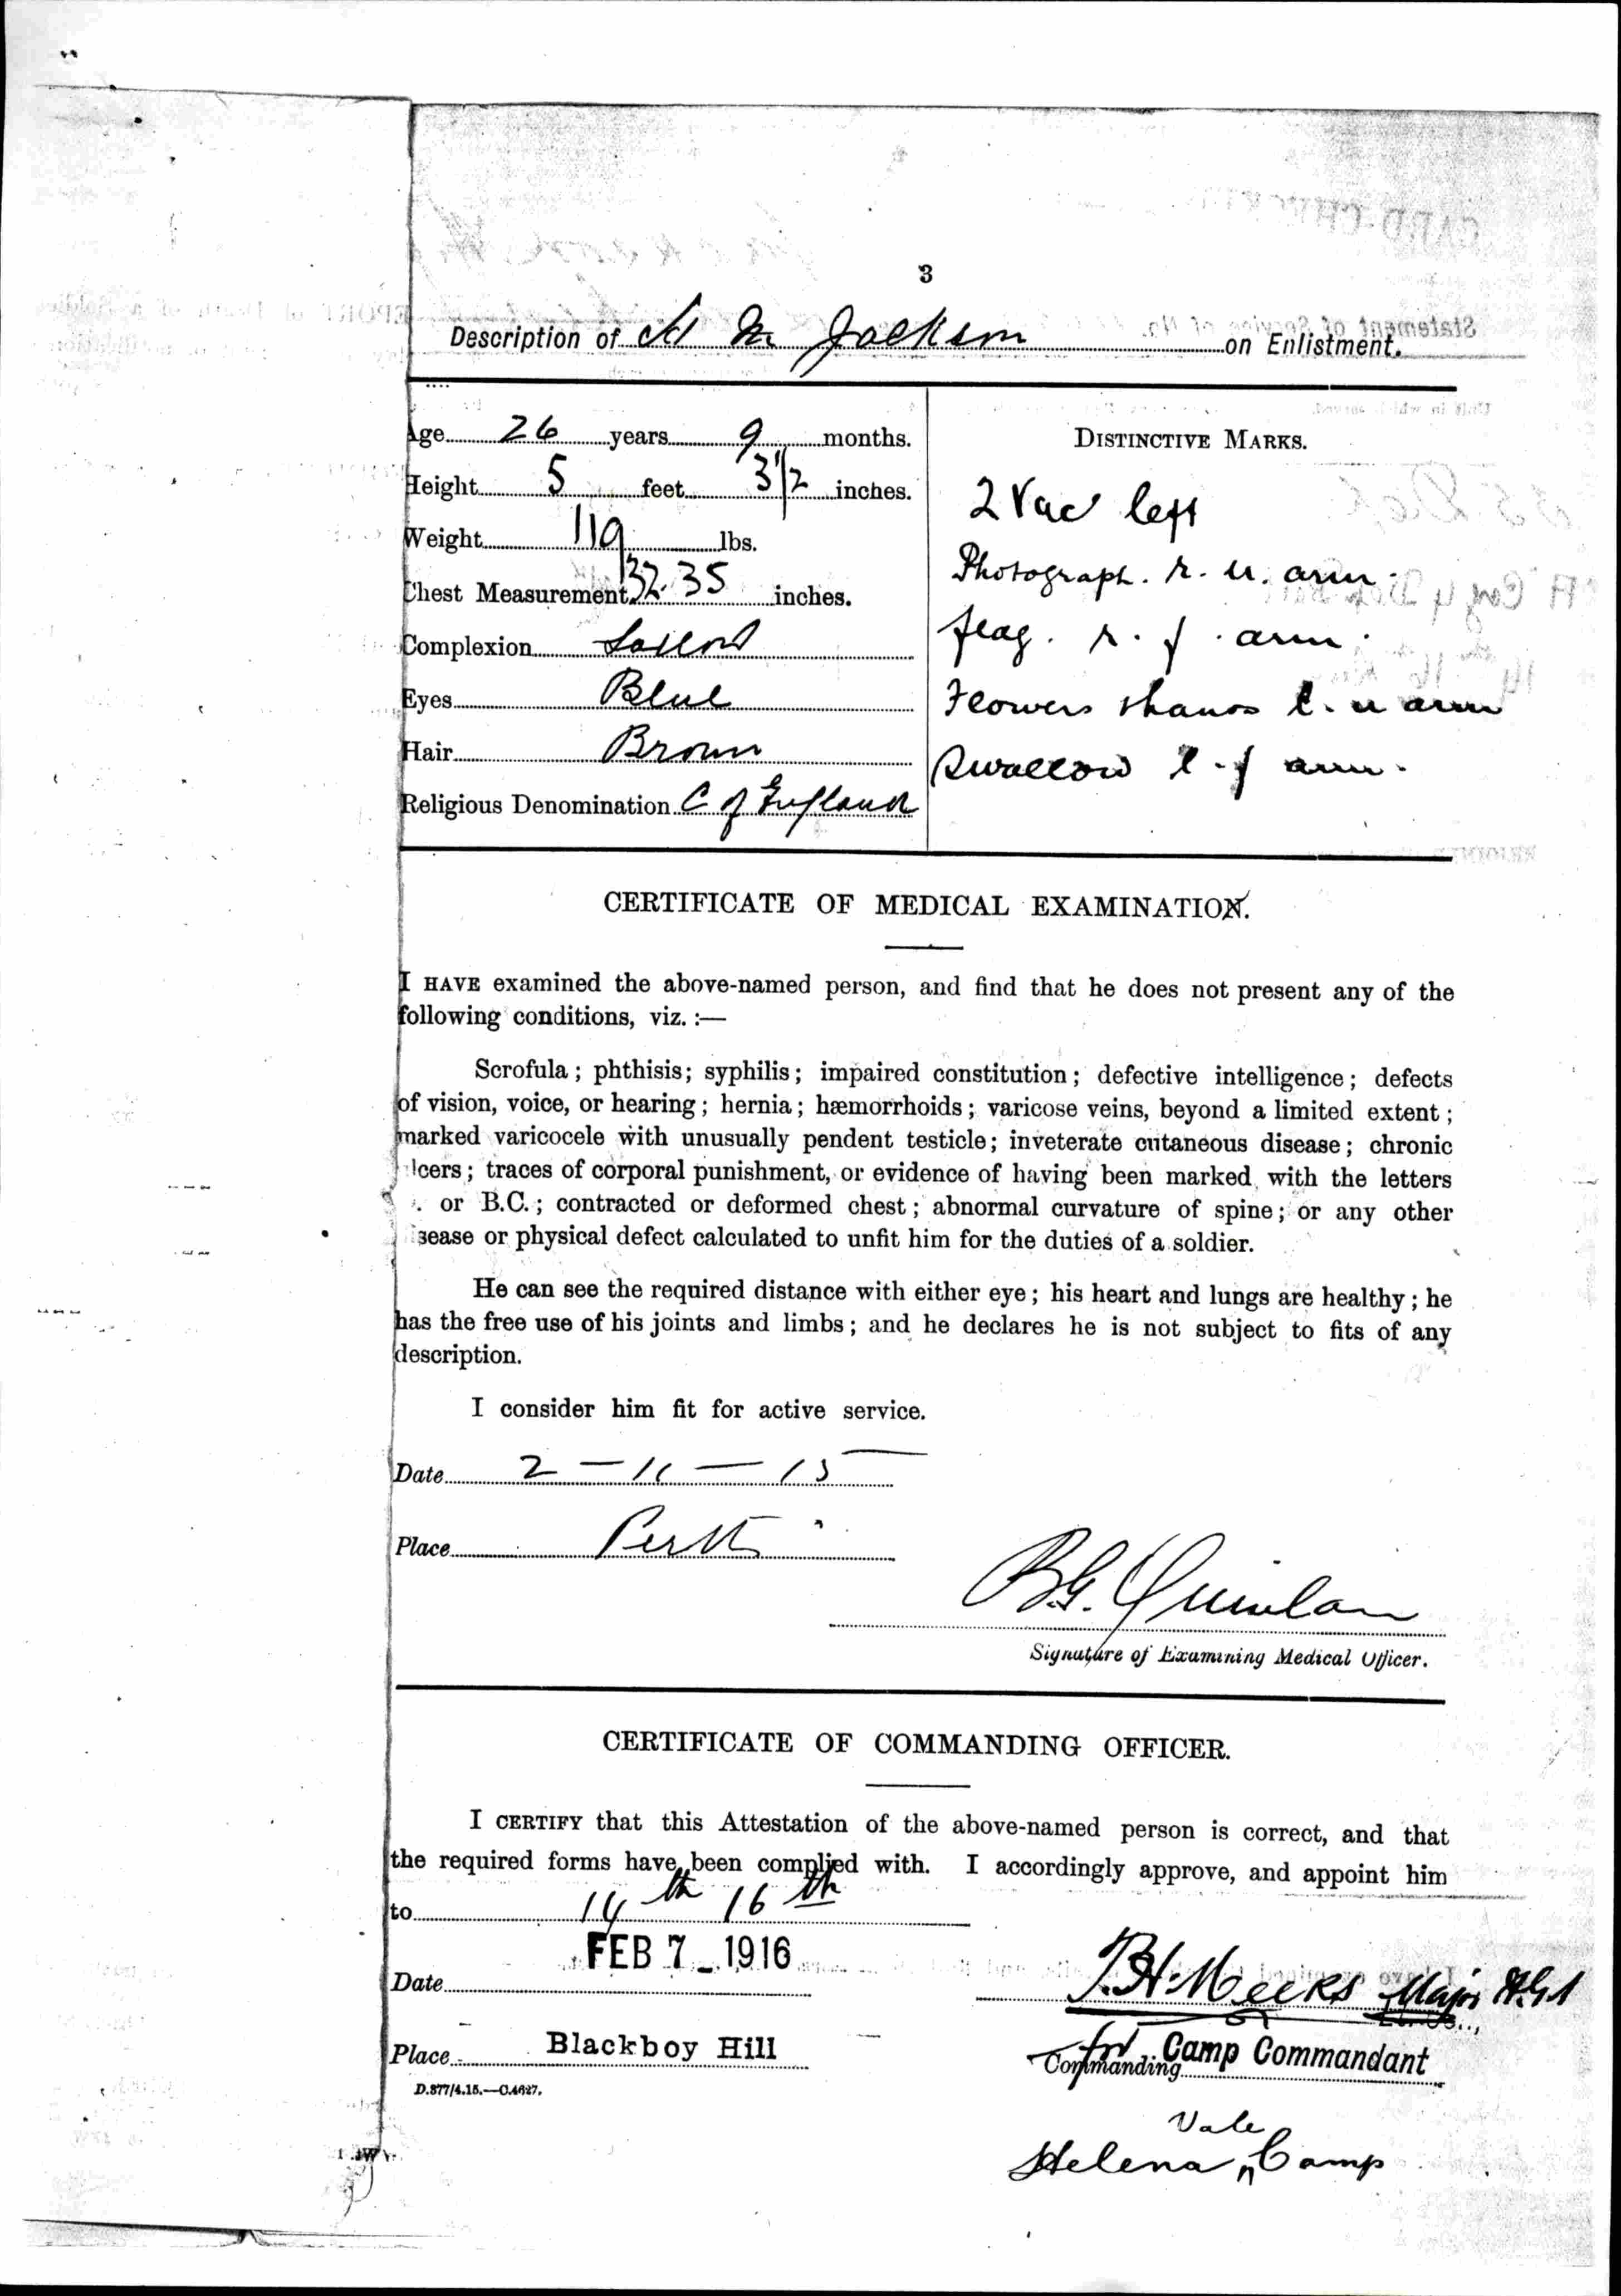 3
Description of Jackson on Enlistment.
Age 26 years 9 months.
Height 5 feet 3 1/2 inches.
Weight 119 lbs.
Chest Measurement 32.35 inches.
Complexion Sallow
Eyes Blue
Hair Brown
Religious Denomination C of England
DISTINCTIVE MARKS.
2 Vac left
Photograph. r. u. arm.
flag. r. f. arm.
Flowers l. u arm
Swallow l. f arm.
CERTIFICATE OF MEDICAL EXAMINATION.
I HAVE examined the above-named person, and find that he does not present any of the
following conditions, viz. :—
Scrofula ; phthisis; syphilis ; impaired constitution ; defective intelligence ; defects
of vision, voice, or hearing ; hernia ; hæmorrhoids ; varicose veins, beyond a limited extent ;
marked varicocele with unusually pendent testicle ; inveterate cutaneous disease ; chronic
lcers ; traces of corporal punishment, or evidence of having been marked with the letters
. or B.C. ; contracted or deformed chest ; abnormal curvature of spine ; or any other
sease or physical defect calculated to unfit him for the duties of a soldier.
He can see the required distance with either eye ; his heart and lungs are healthy ; he
has the free use of his joints and limbs ; and he declares he is not subject to fits of any
description.
I consider him fit for active service.
Date 2 – 11 – 15
Place Perth
B.G. Quinlan
Signature of Examining Medical Officer.
CERTIFICATE OF COMMANDING OFFICER.
I CERTIFY that this Attestation of the above-named person is correct, and that
the required forms have been complied with. I accordingly approve, and appoint him
to 14th 16th
Date FEB 7 1916
Meeks Major
Place Blackboy Hill
for Camp Commandant
Commanding
D.877/4.15.—C.4627.
Vale
Helena Camp